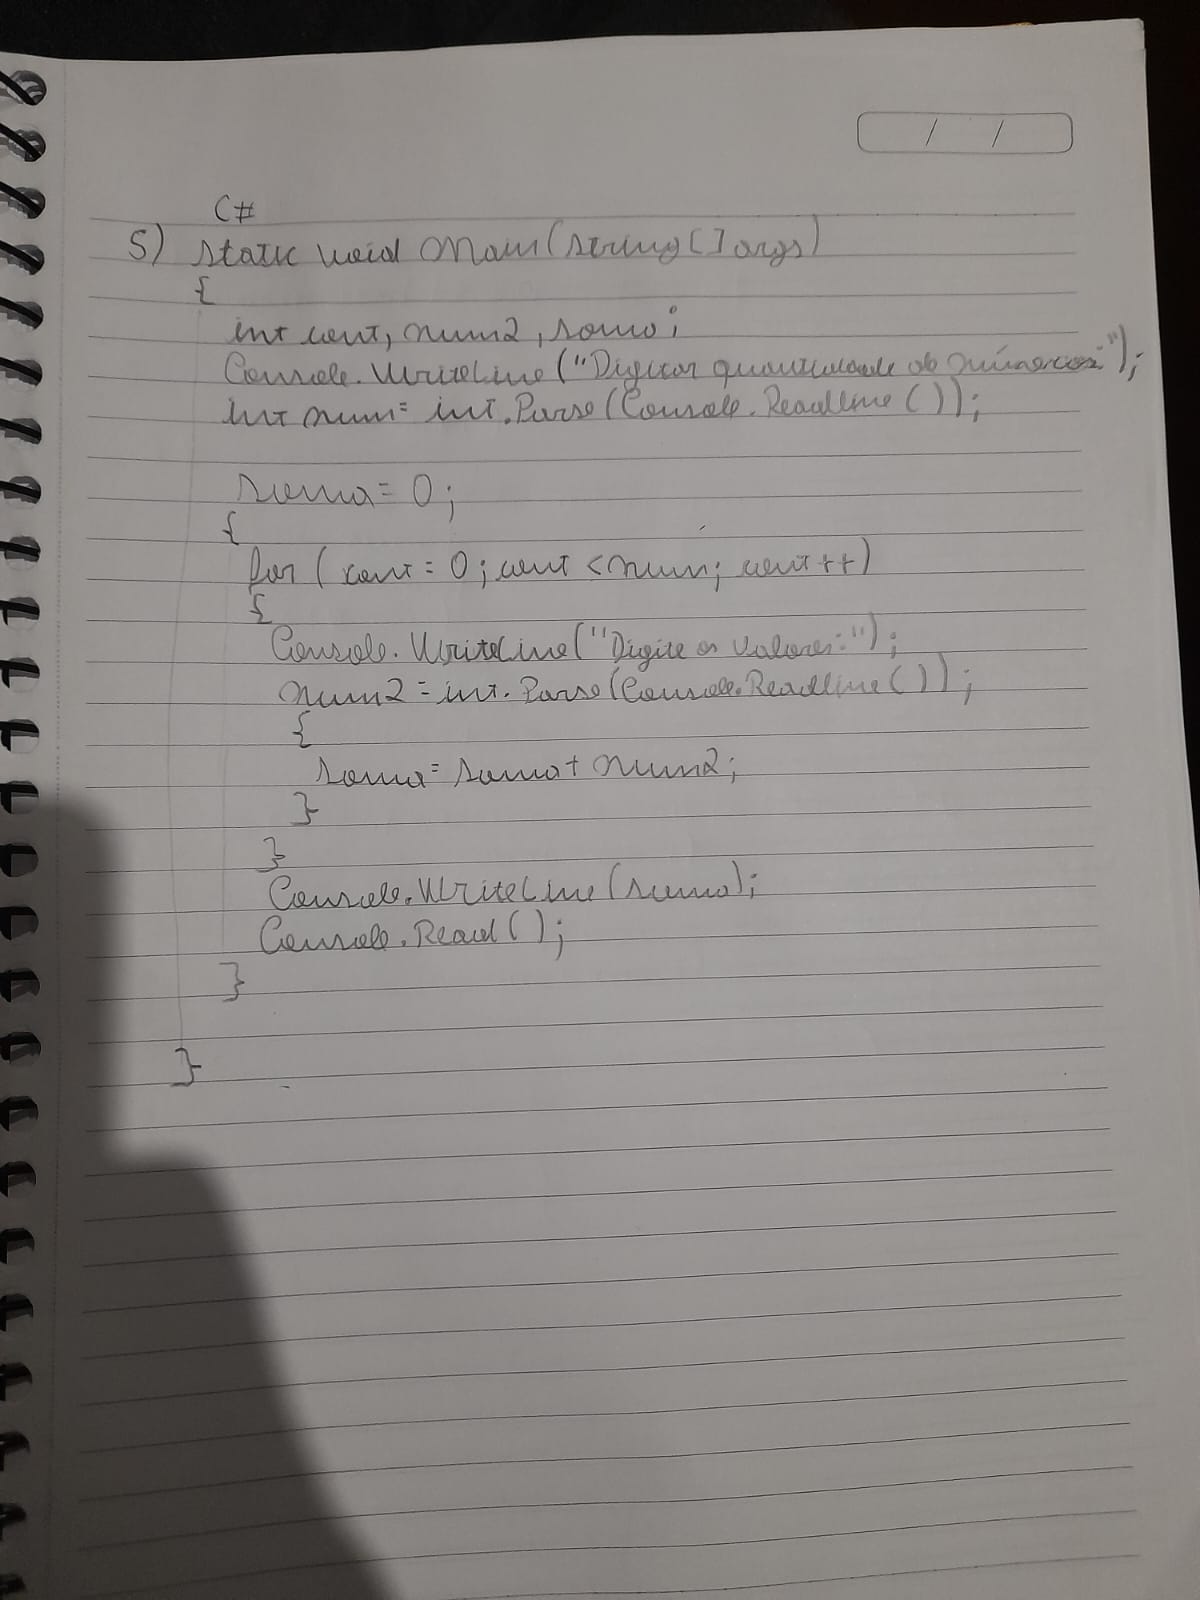 / /
C#
5) static void Main(string[] args)
{
int cont, num2, soma;
Console.WriteLine("Digitar quantidade de números:");
int num= int.Parse(Console.Readline());
soma= 0;
{
for (cont = 0; cont < num; cont++)
{
Console.WriteLine("Digite os valores:");
num2 = int.Parse(Console.Readline());
{
soma= soma+ num2;
}
}
Console.WriteLine(soma);
Console.Read();
}
}